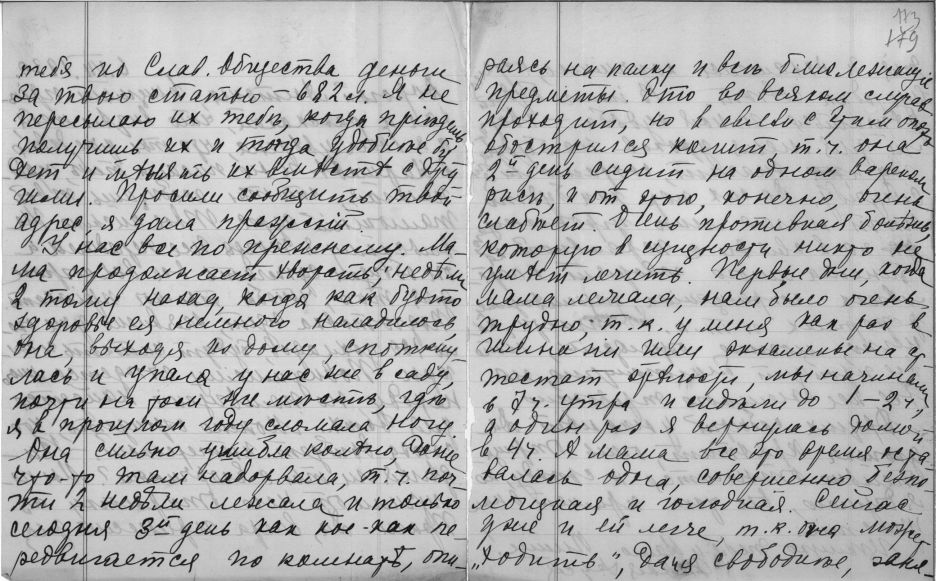 113
119
тебя из Слав. Общества деньги
за твою статью – 682 л. Я не
пересылаю их тебѣ, когда пріѣдешь
получишь их и тогда удобнѣе бу
дет и мѣнять их вмѣстѣ с дру
гими. Просили сообщить твой
адрес, я дала пражскій.
У нас все по прежнему. Ма-
ма продолжает хворать: недѣли
2 тому назад, когда как будто
здоровье ея немного наладилось,
она, выходя из дому, споткну
лась и упала у нас же в саду,
почти на том же мѣстѣ, гдѣ
я в прошлом году сломала ногу.
Она сильно ушибла колѣно, даже
что-то там надорвала, т. ч. поч
ти 2 недѣли лежала и только
сегодня 3й день как кое-как пе-
редвигается по комнатѣ, опи-
раясь на палку и всѣ близлежащіе
предметы. Это во всяком случаѣ
проходит, но в связи с этим опять
обострился колит, т. ч. она
2й день сидит на одном вареном
рисѣ и от этого, конечно, очень
слабѣет. Очень противная болѣзнь,
которую в сущности никто не
умѣет лечить. Первые дни, когда
мама лежала, нам было очень
трудно, т. к. у меня как раз в
гимназіи шли экзамены на ат
тестат зрѣлости, мы начинали
в 7 ч. утра и сидѣли до 1 – 2 ч.,
а один раз я вернулась домой
в 4 ч. А мама все это время оста
валась одна, совершенно безпо-
мощная и голодная. Сейчас
уже и ей легче, т. к. она может
„ходить", да и я свободнѣе, заня-